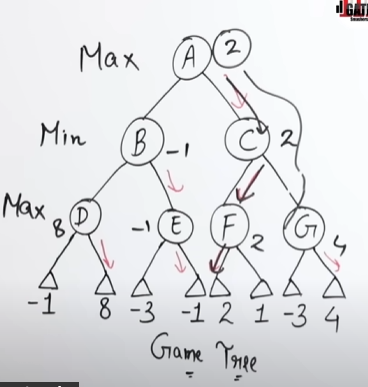 GAT
Max A 2
Min B -1 C 2
Max 8 D -1 E F 2 G 4
-1 8 -3 -1 2 1 -3 4
Game Tree